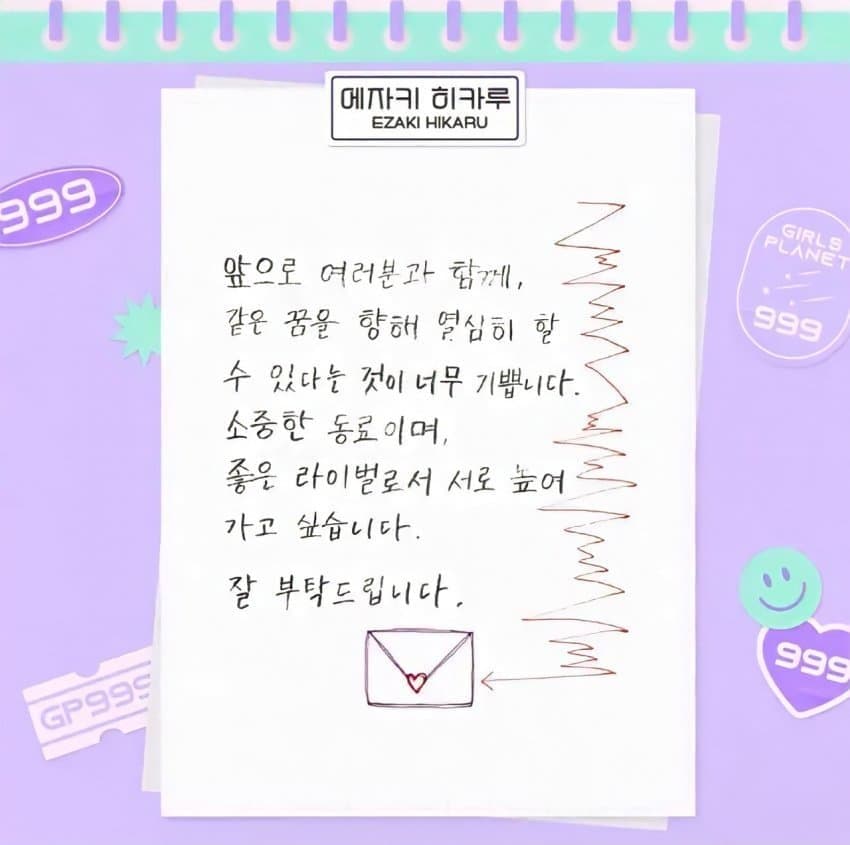 에자키 히카루
EZAKI HIKARU
999
GIRLS
PLANET
999
앞으로 여러분과 함께,
같은 꿈을 향해 열심히 할
수 있다는 것이 너무 기쁩니다.
소중한 동료이며,
좋은 라이벌로서 서로 높여
가고 싶습니다.
잘 부탁드립니다.
999
GP999